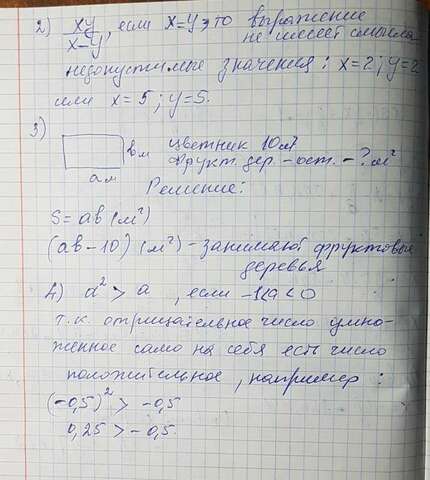 2) xy/x-y, если x=y, это выражение
не имеет смысла
недопустимые значения: x=2; y=2
или x=5; y=5.
3)
в м
а м
цветник 10м²
фрукт. дер. - ост. - ? м²
Решение:
S = ab (м²)
(ab-10) (м²) - занимают фруктовые
деревья
4) a² > a, если -1<a<0
т.к. отрицательное число умно-
женное само на себя есть число
положительное, например:
(-0,5)² > -0,5
0,25 > -0,5.